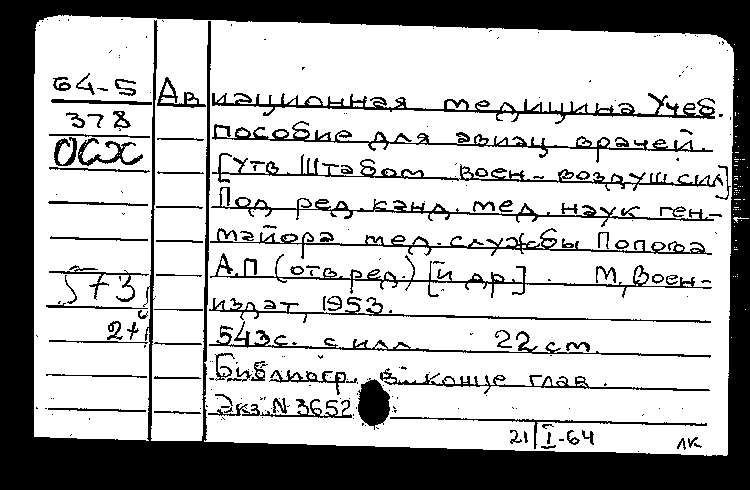 64-5 Авиационная медицина. Учеб.
378 пособие для авиац. врачей.
ОСХ [утв. Штабом воен.-воздуш.сил]
Под ред. канд. мед. наук ген.-
майора мед. службы Попова
А.П (отв. ред.) [и др.]. М, Воен-
издат, 1953.
543с. с илл. 22 см.
Библиогр. в конце глав.
Экз. N 3652
21/I-64 лк